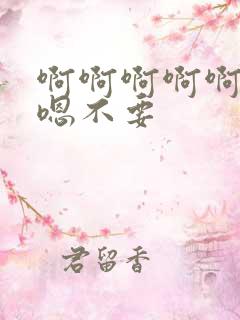 啊啊啊啊啊
嗯不要
君留香